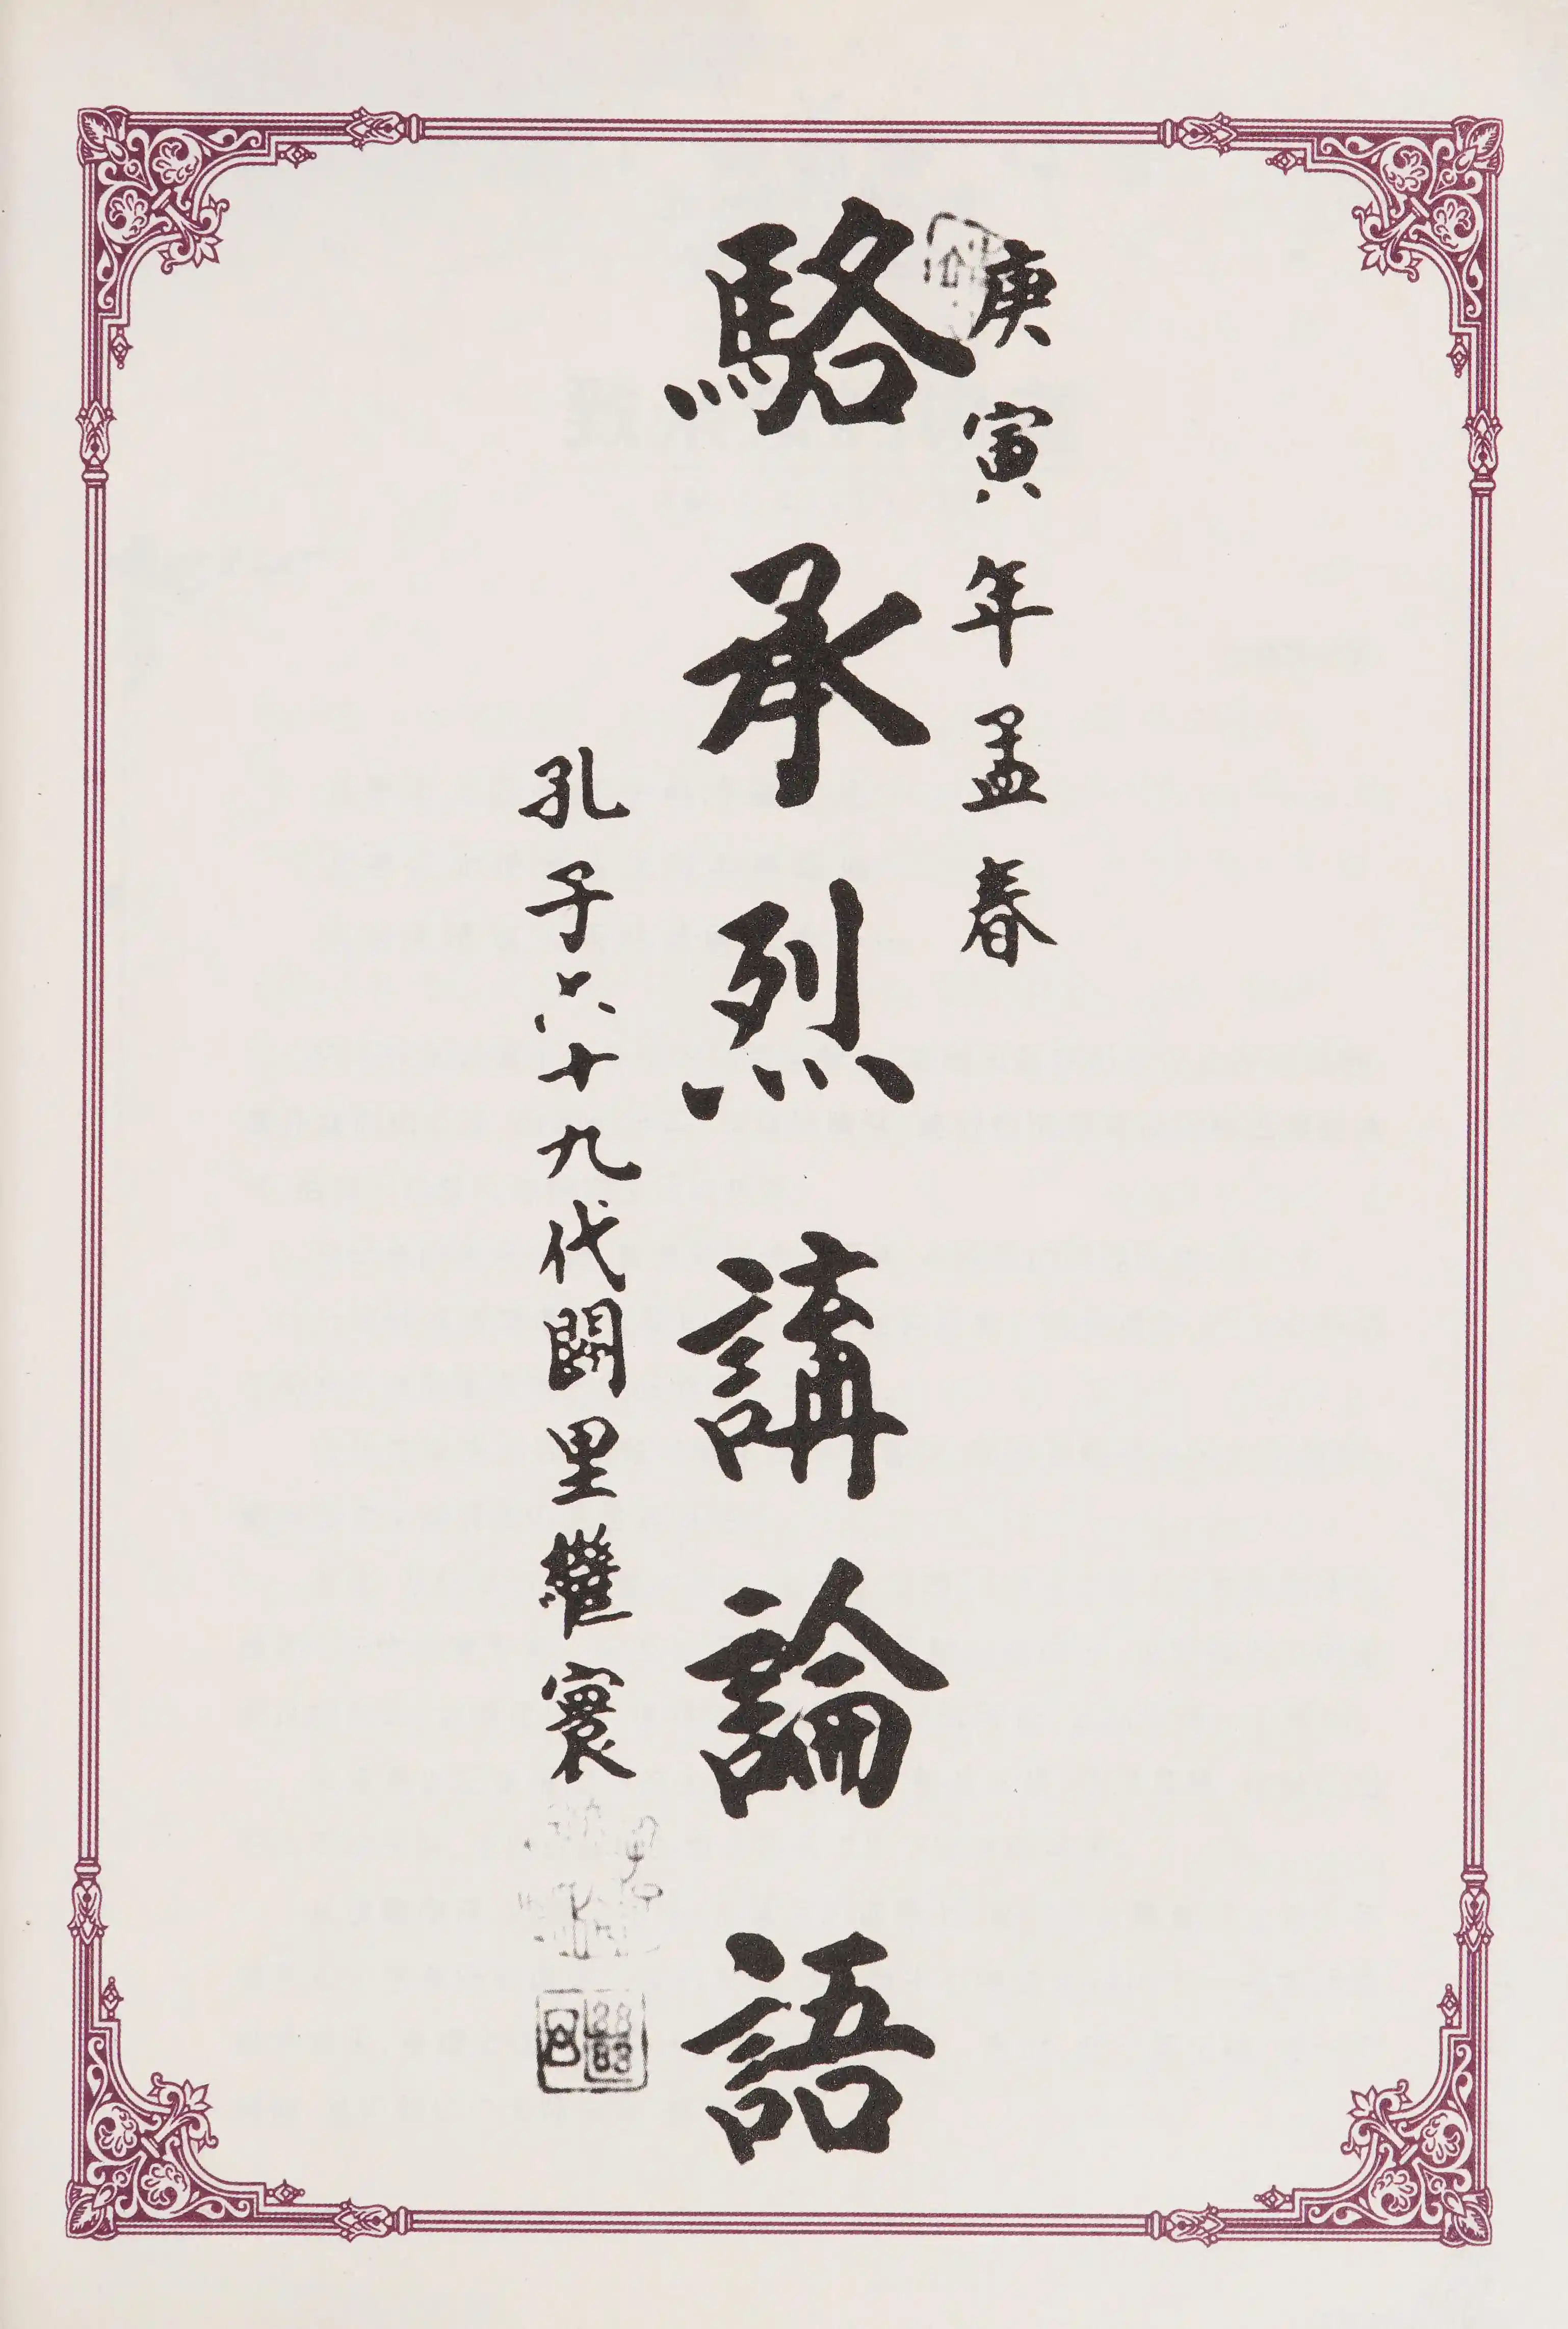 庚寅年孟春
駱承烈講論語
孔子六十九代闕里繼寰